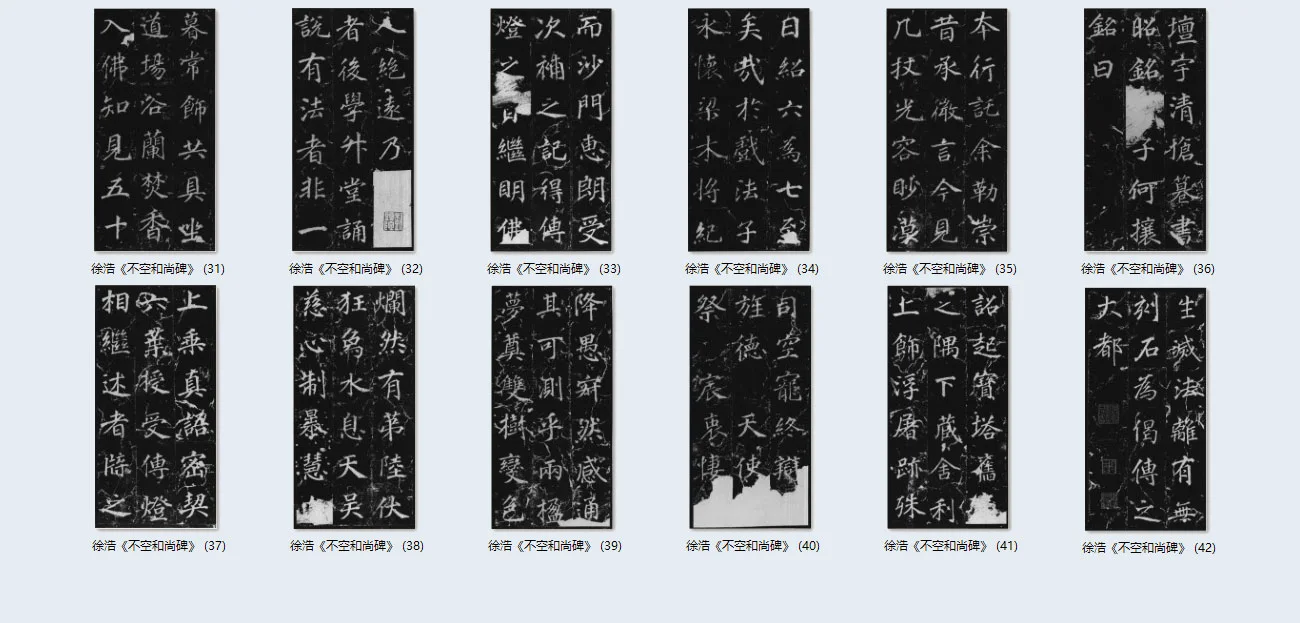 暮常飾共具坐
道場浴蘭焚香
入佛知見五十
徐浩《不空和尚碑》 (31)
人絶遠乃
者後學升堂誦
說有法者非一
徐浩《不空和尚碑》 (32)
而沙門惠朗受
次補之記得傳
燈之繼明佛
徐浩《不空和尚碑》 (33)
日紹六為七至
矣哉於戲法子
永懷梁木將紀
徐浩《不空和尚碑》 (34)
本行託余勒崇
昔承微言今見
几杖光容眇漠
徐浩《不空和尚碑》 (35)
壇宇清愴篹書
昭銘子何攘
銘曰
徐浩《不空和尚碑》 (36)
上乘真語密契
六葉授受傳燈
相繼述者牒之
徐浩《不空和尚碑》 (37)
爛然有第陸伏
狂象水息天吳
慈心制暴慧
徐浩《不空和尚碑》 (38)
降愚寂然感通
其可測乎兩楹
夢奠雙樹變色
徐浩《不空和尚碑》 (39)
司空寵終辯
旌德天使
祭宸衷悽
徐浩《不空和尚碑》 (40)
詔起寶塔舊
之隅下藏舍利
上飾浮屠跡殊
徐浩《不空和尚碑》 (41)
生滅法離有無
刻石為偈傳之
大都
徐浩《不空和尚碑》 (42)